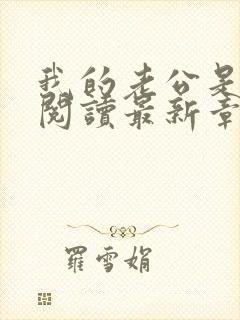 我的老公是
閱讀最新章
羅雪娟